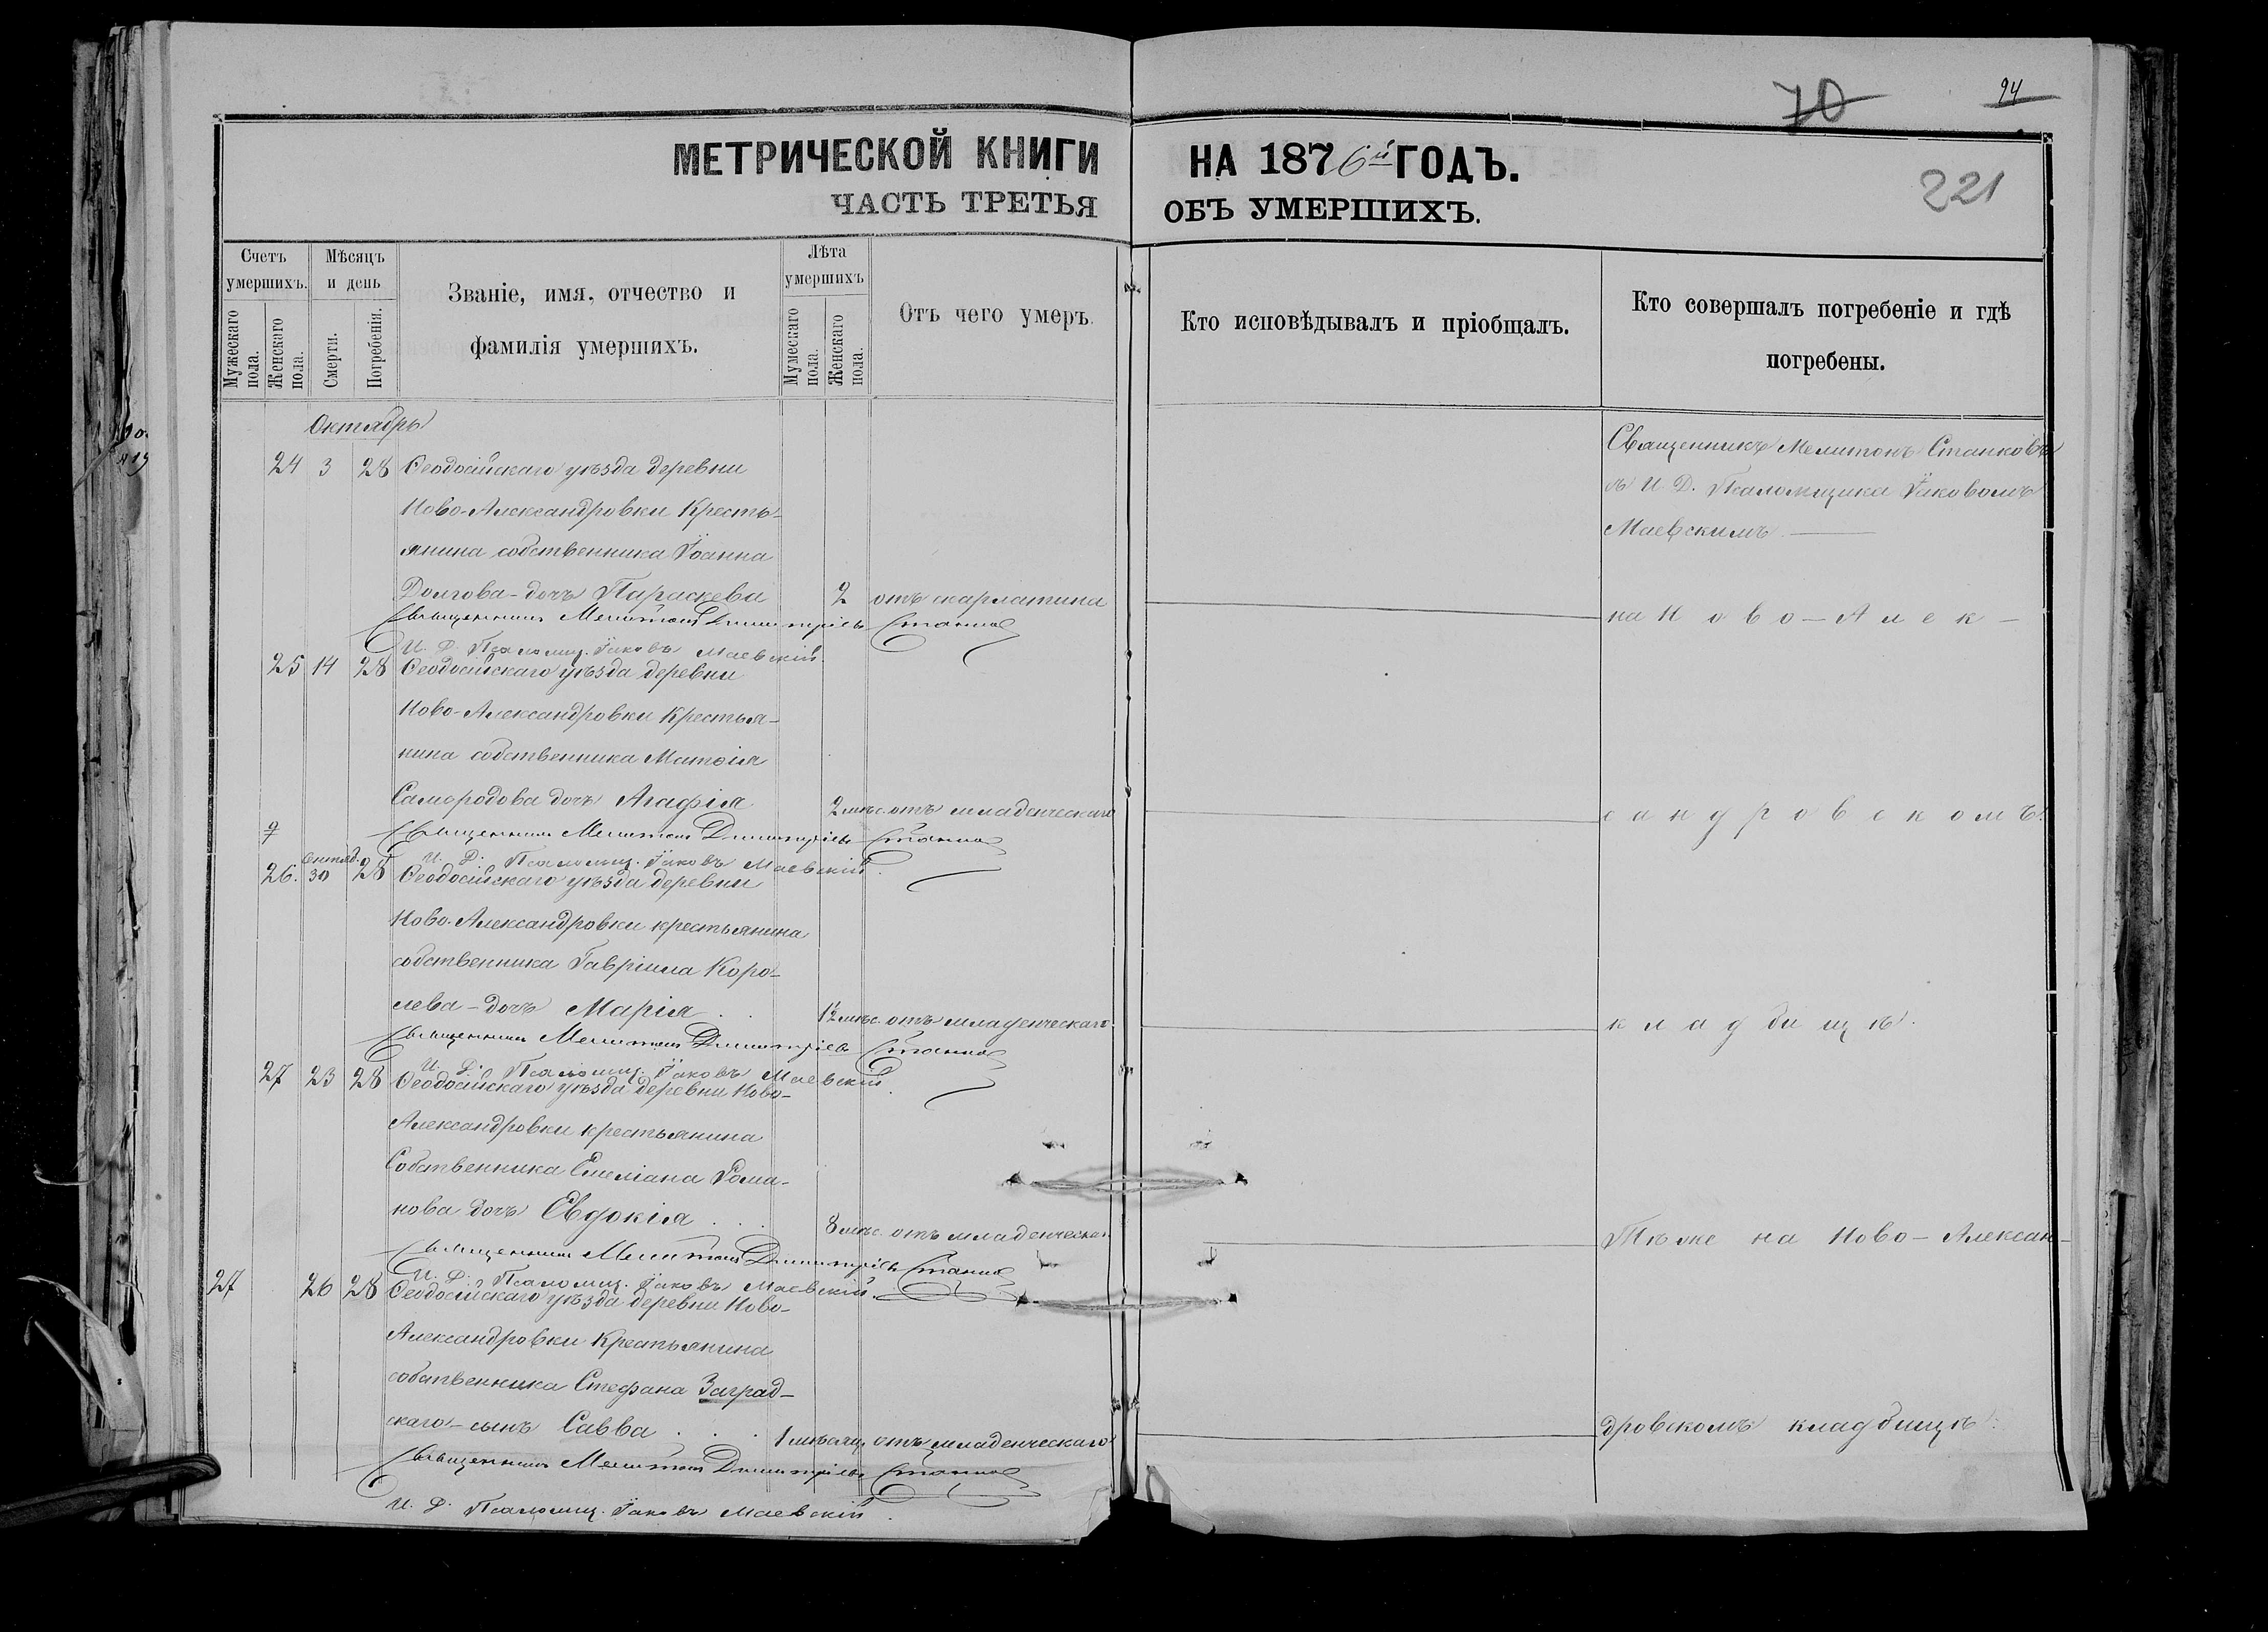 70
94
221
МЕТРИЧЕСКОЙ КНИГИ НА 1876й ГОДЪ.
ЧАСТЬ ТРЕТЬЯ ОБЪ УМЕРШИХЪ.
Счетъ умершихъ.
Мужескаго пола.
Женскаго пола.
Мѣсяцъ и день
Смерти.
Погребенія.
Званіе, имя, отчество и
фамилія умершихъ.
Лѣта умершихъ
Мужескаго пола.
Женскаго пола.
Отъ чего умеръ.
Кто исповѣдывалъ и пріобщалъ.
Кто совершалъ погребеніе и гдѣ
погребены.
Октябрь
24 3 28 Ѳеодосійскаго уѣзда деревни
Ново-Александровки Кресть-
янина собственника Іоанна
Долгова - дочь Параскева 2 отъ скарлатина
Священникъ Мелитонъ Димитріевъ Станковъ
И. Д. Псаломщ. Іаковъ Маевскій.
25 14 28 Ѳеодосійскаго уѣзда деревни
Ново-Александровки Крестья-
нина собственника Матѳія
Самородова дочь Агафія 2 мѣс. отъ младенческаго
Священникъ Мелитонъ Димитріевъ Станковъ
И. Д. Псаломщ. Іаковъ Маевскій.
26. Сентяб. 30 28 Ѳеодосійскаго уѣзда деревни
Ново-Александровки крестьянина
собственника Гавріила Коро-
лева - дочь Марія . . 1½ мѣс. отъ младенческаго.
Священникъ Мелитонъ Димитріевъ Станковъ
И. Д. Псаломщ. Іаковъ Маевскій.
27 23 28 Ѳеодосійскаго уѣзда деревни Ново-
Александровки крестьянина
Собственника Емеліана Рома-
нова дочь Евдокія . . . 8 мѣс. отъ младенческаго
Священникъ Мелитонъ Димитріевъ Станковъ
И. Д. Псаломщ. Іаковъ Маевскій.
27 26 28 Ѳеодосійскаго уѣзда деревни Ново-
Александровки Крестьянина
собственника Стефана Заград-
скаго - сынъ Савва . . . 1 мѣсяц. отъ младенческаго
Священникъ Мелитонъ Димитріевъ Станковъ
И. Д. Псаломщ. Іаковъ Маевскій.
Священникъ Мелитонъ Станковъ
съ И. Д. Псаломщика Іаковомъ
Маевскимъ.
на Ново-Алек-
сандровскомъ
кладбищѣ.
Тѣже на Ново-Алексан-
дровскомъ кладбищѣ.